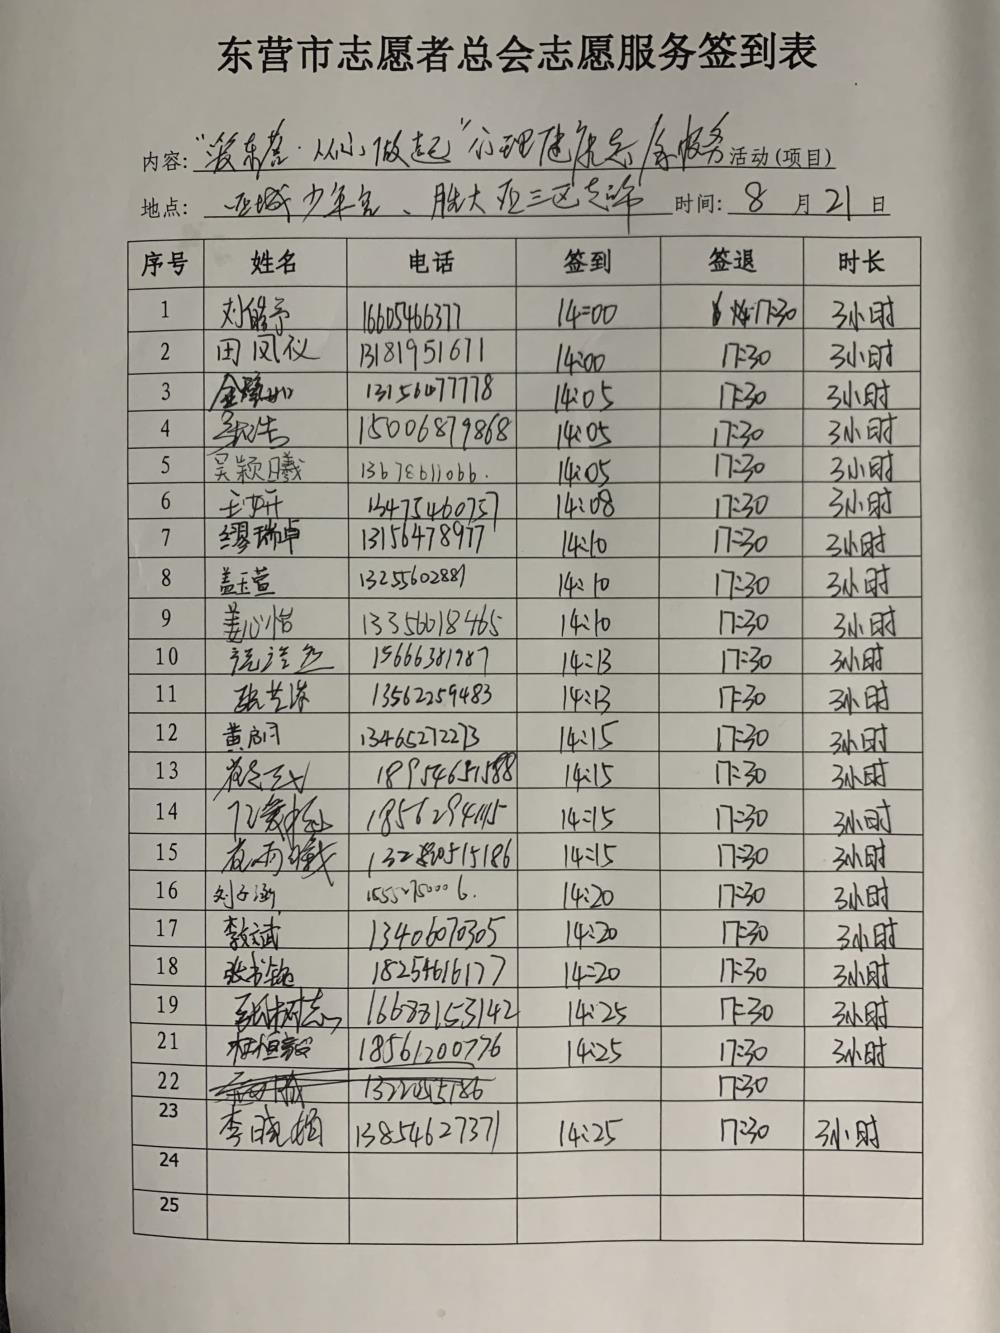 东营市志愿者总会志愿服务签到表
内容: “爱东营·从小做起”心理健康志愿服务 活动(项目)
地点: 西城少年宫、胜大 时间: 8 月 21 日
序号 姓名 电话 签到 签退 时长
1 16605466377 14:00 17:30 3小时
2 田凤仪 13181951671 14:00 17:30 3小时
3 13156077778 14:05 17:30 3小时
4 15006879868 14:05 17:30 3小时
5 吴颖曦 13678611066. 14:05 17:30 3小时
6 王妍 13475460757 14:08 17:30 3小时
7 缪瑞卓 13156478977 14:10 17:30 3小时
8 盖玉萱 13255602887 14:10 17:30 3小时
9 姜心怡 13356018465 14:10 17:30 3小时
10 15666381787 14:13 17:30 3小时
11 13562259483 14:13 17:30 3小时
12 13465272273 14:15 17:30 3小时
13 18954651588 14:15 17:30 3小时
14 14:15 17:30 3小时
15 14:15 17:30 3小时
16 刘子涵 14:20 17:30 3小时
17 13406070305 14:20 17:30 3小时
18 18254616177 14:20 17:30 3小时
19 16688153142 14:25 17:30 3小时
21 18561200776 14:25 17:30 3小时
22 17:30
23 李晓娟 13854627371 14:25 17:30 3小时
24
25